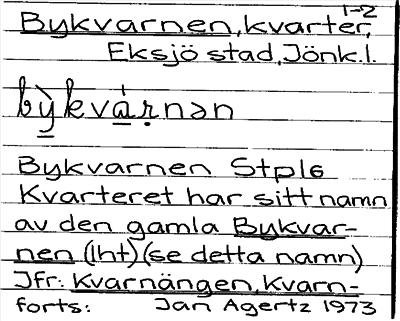 1-2
Bykvarnen, kvarter,
Eksjö stad, Jönk.l.
bỳkvá̱ṛnən
Bykvarnen Stpl6
Kvarteret har sitt namn
av den gamla Bykvar-
nen (lht) (se detta namn)
Jfr: Kvarnängen, Kvarn-
forts: Jan Agertz 1973